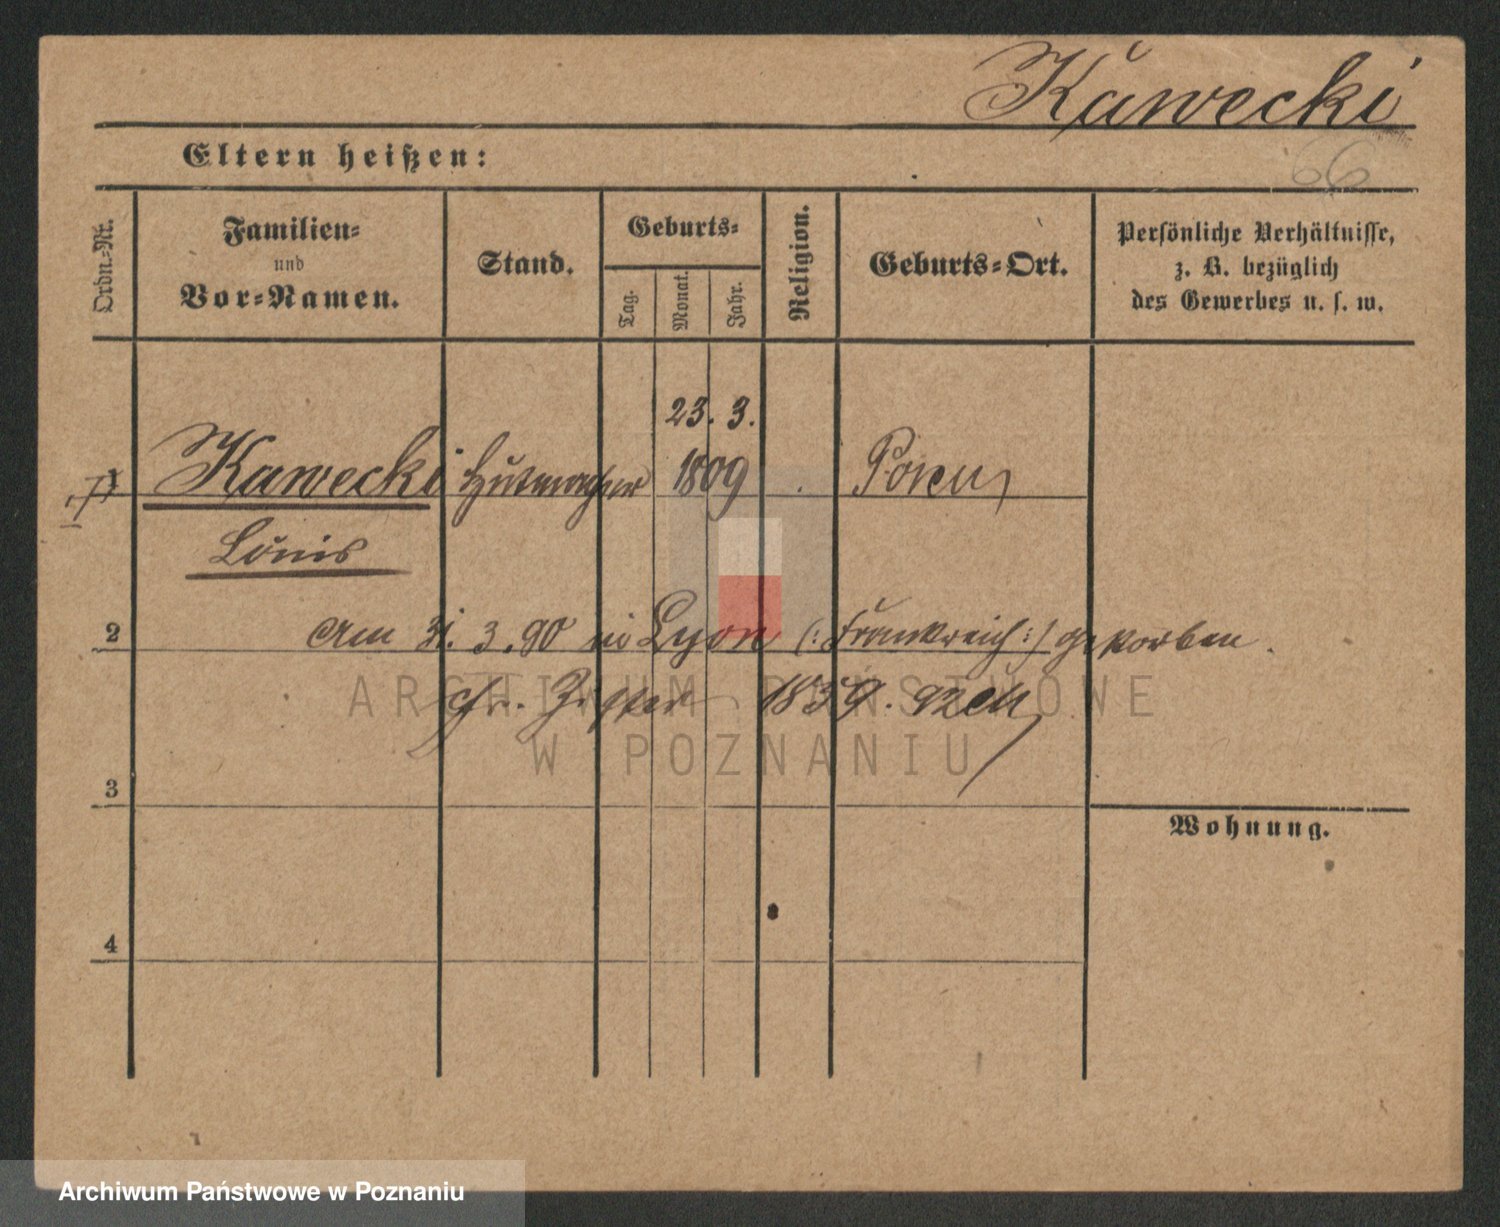 Kawecki
66
Eltern heißen:
Ordn.-Nr.
Familien-
und
Vor-Namen.
Stand.
Geburts-
Tag.
Monat.
Jahr.
Religion.
Geburts-Ort.
Persönliche Verhältnisse,
z. B. bezüglich
des Gewerbes u. s. w.
23. 3.
1 Kawecki Hutmacher 1809 Posen
Louis
2 Am 31. 3. 90 in Lyon (: Frankreich :) gestorben.
cfr. 1839.
ARCHIWUM PAŃSTWOWE
W POZNANIU
3
Wohnung.
4
Archiwum Państwowe w Poznaniu